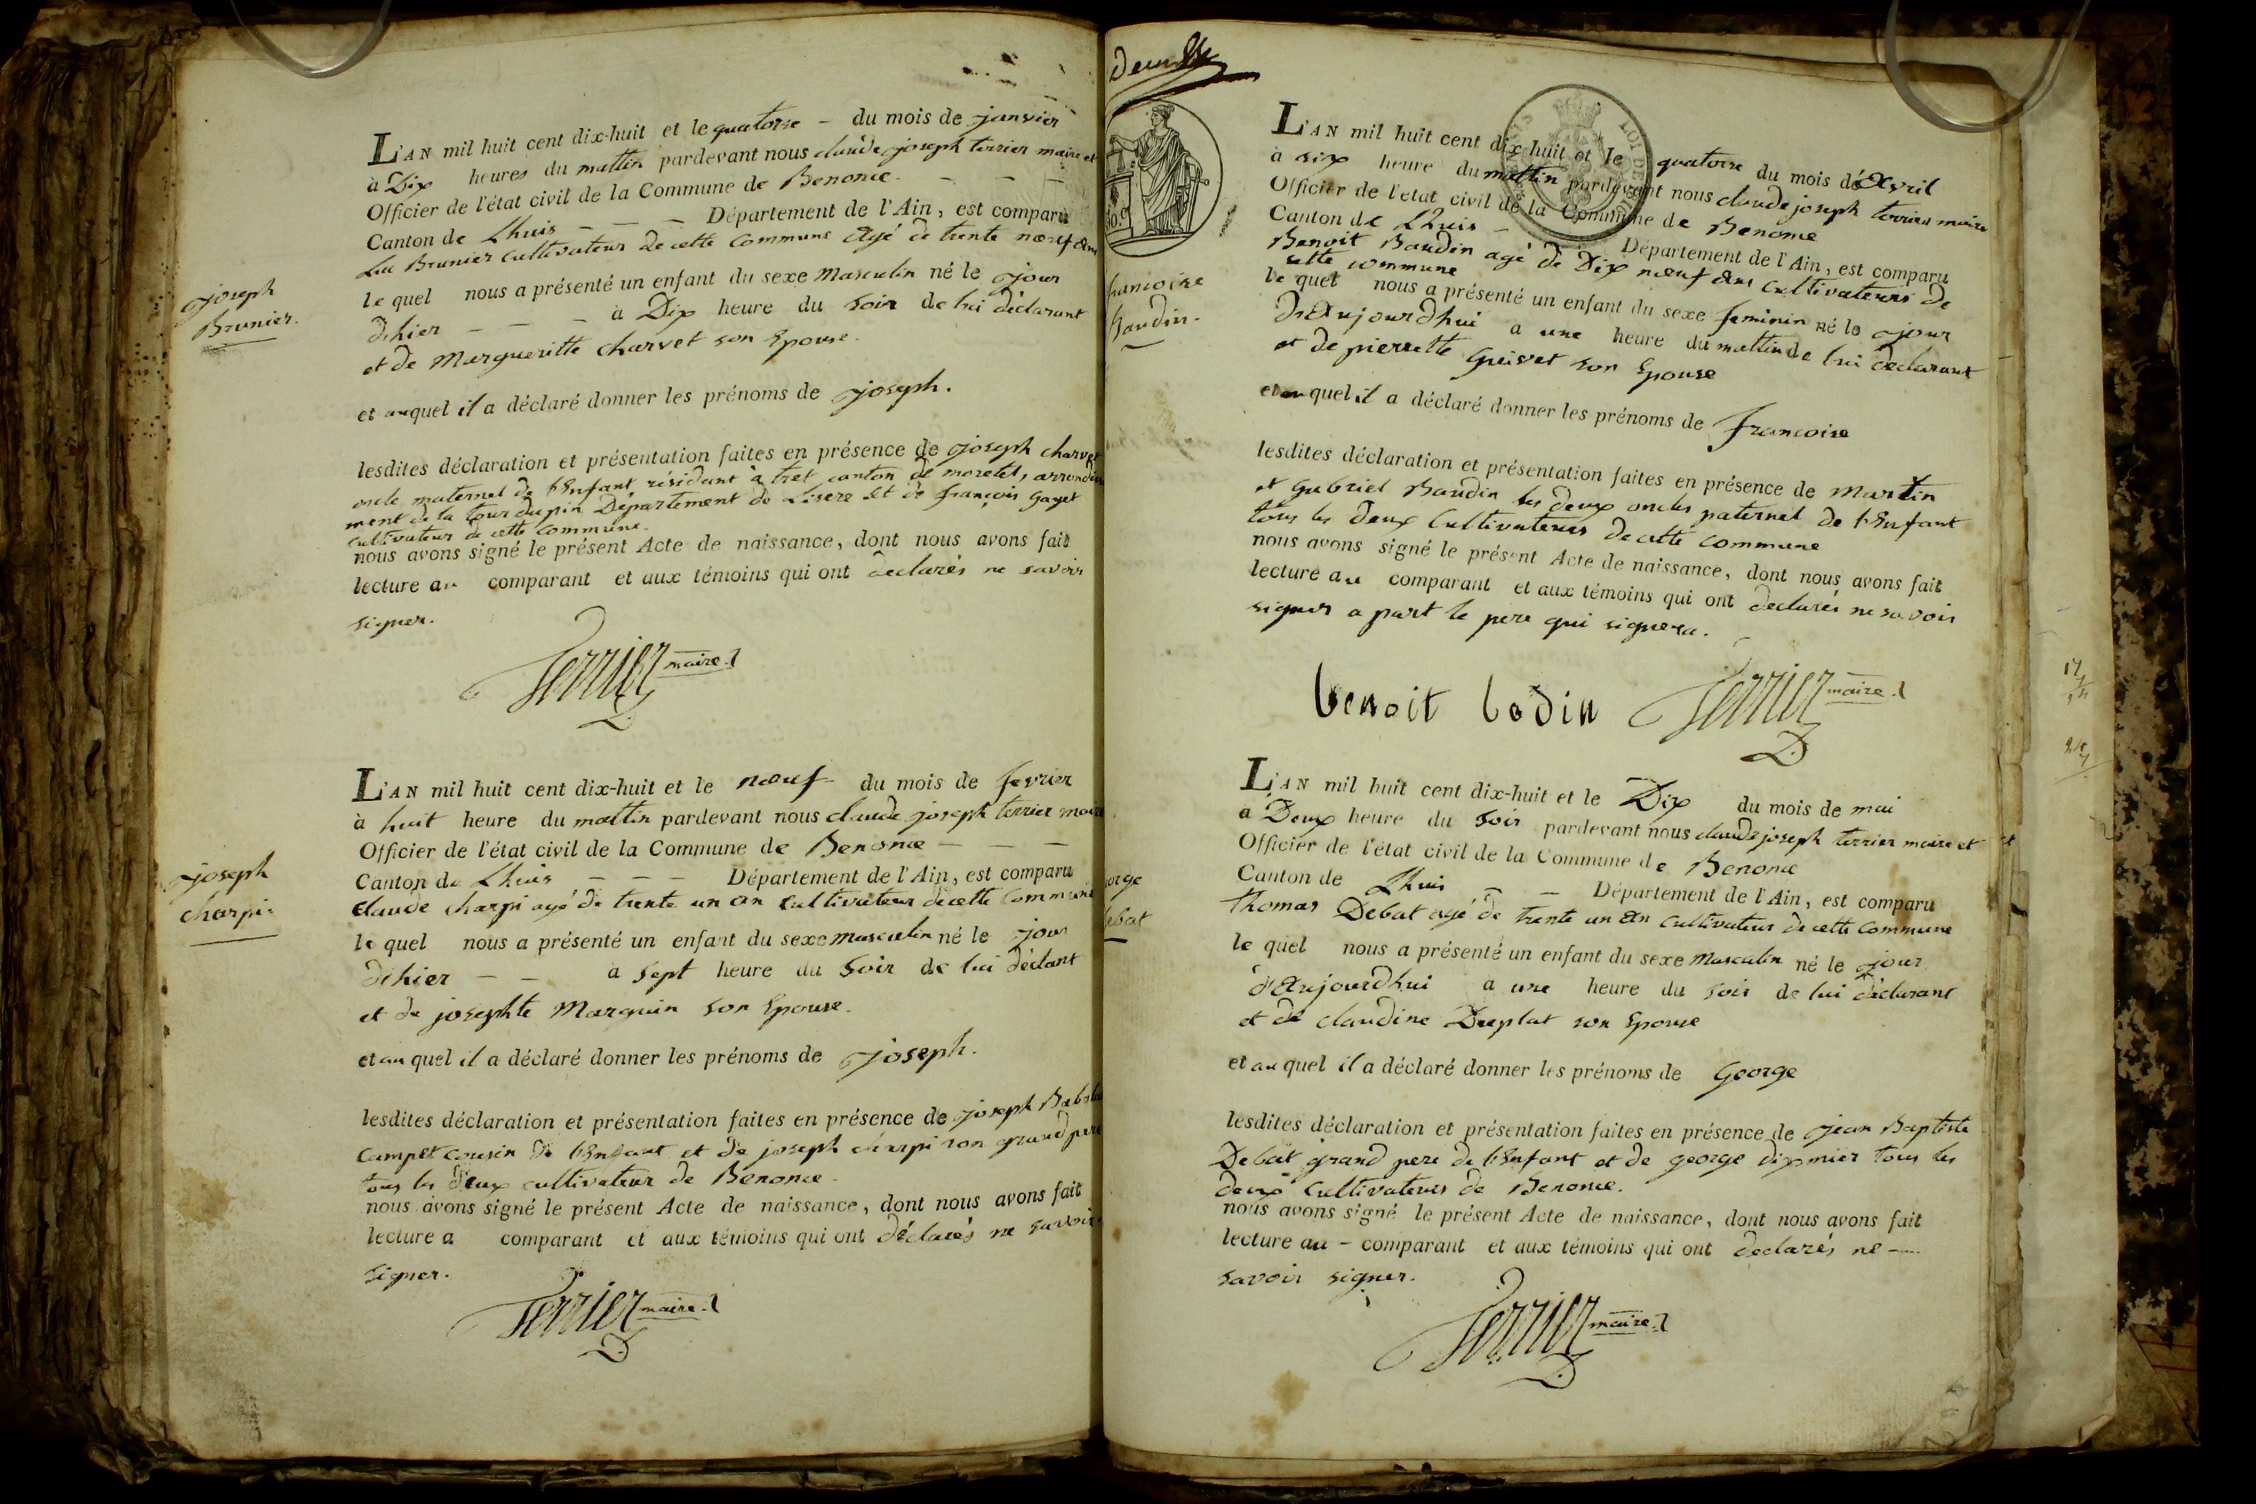 L'AN mil huit cent dix-huit et le quatorse - du mois de janvier
à Dix heures du mattin pardevant nous claude joseph terrier maire et
Officier de l'état civil de la Commune de Benonce - - -
Canton de Lhuis - - - Département de l'Ain, est comparu
Luc Brunier cultivateur de cette commune agé de trente nœuf ans
joseph
Brunier.
le quel nous a présenté un enfant du sexe masculin né le jour
dihier - - - à Dix heure du soir de lui déclarant
et de Margueritte charvet son Epouse.
et auquel il a déclaré donner les prénoms de joseph.
lesdites déclaration et présentation faites en présence de joseph charvet
oncle maternel de l'Enfant résidant à tret canton de moretel, arrondisse
ment de la tour du pin Département de Lisere et de françois gayet
cultivateur de cette commune.
nous avons signé le présent Acte de naissance, dont nous avons fait
lecture au comparant et aux témoins qui ont declarés ne savoir
signer.
Terrier maire
L'AN mil huit cent dix-huit et le nœuf du mois de fevrier
à huit heure du mattin pardevant nous claude joseph terrier maire
Officier de l'état civil de la Commune de Benonce - - -
Canton de Lhuis - - - Département de l'Ain, est comparu
joseph
charpi
claude charpi agé de trente un an cultivateur de cette commune
le quel nous a présenté un enfant du sexe masculin né le jour
dihier - - à sept heure du soir de lui déclant
et de josephte Marquin son Epouse.
et au quel il a déclaré donner les prénoms de joseph.
lesdites déclaration et présentation faites en présence de joseph
campet cousin de l'Enfant et de joseph charpi son grand pere
tous les deux cultivateur de Benonce.
nous avons signé le présent Acte de naissance, dont nous avons fait
lecture a comparant et aux témoins qui ont déclarés ne savoir
signer.
Terrier maire
L'AN mil huit cent dix-huit et le quatorse du mois de Avril
à six heure du mattin pardevant nous claude joseph terrier maire
Officier de l'etat civil de la Commune de Benonce
Canton de Lhuis - Département de l'Ain, est comparu
Benoit Baudin agé de Dix nœuf ans cultivateur de
cette commune
francoise
Baudin.
le quel nous a présenté un enfant du sexe feminin né le jour
D'Aujourdhui a une heure du mattin de lui declarant
et de pierrette Grisvet son Epouse
et au quel il a déclaré donner les prénoms de francoise
lesdites déclaration et présentation faites en présence de Martin
et gabriel Baudin les deux oncles paternel de l'Enfant
tous les deux cultivateurs de cette commune
nous avons signé le présent Acte de naissance, dont nous avons fait
lecture au comparant et aux témoins qui ont declarés ne savoir
signer a part le pere qui signera.
benoit bodin Terrier maire
L'AN mil huit cent dix-huit et le Dix du mois de mai
a Deux heure du soir pardevant nous claude joseph terrier maire et
Officier de l'état civil de la Commune de Benonce
Canton de Lhuis - - Département de l'Ain, est comparu
orge
ebat
thomas Debat agé de trente un an cultivateur de cette commune
le quel nous a présenté un enfant du sexe masculin né le jour
d'Aujourdhui a une heure du soir de lui déclarant
et de claudine Duplat son Epouse
et au quel il a déclaré donner les prénoms de George
lesdites déclaration et présentation faites en présence de jean Baptiste
Debat grand pere de l'Enfant et de george dixmier tous les
deux cultivateurs de Benonce.
nous avons signé le présent Acte de naissance, dont nous avons fait
lecture au - comparant et aux témoins qui ont declarés ne -
savoir signer.
Terrier maire